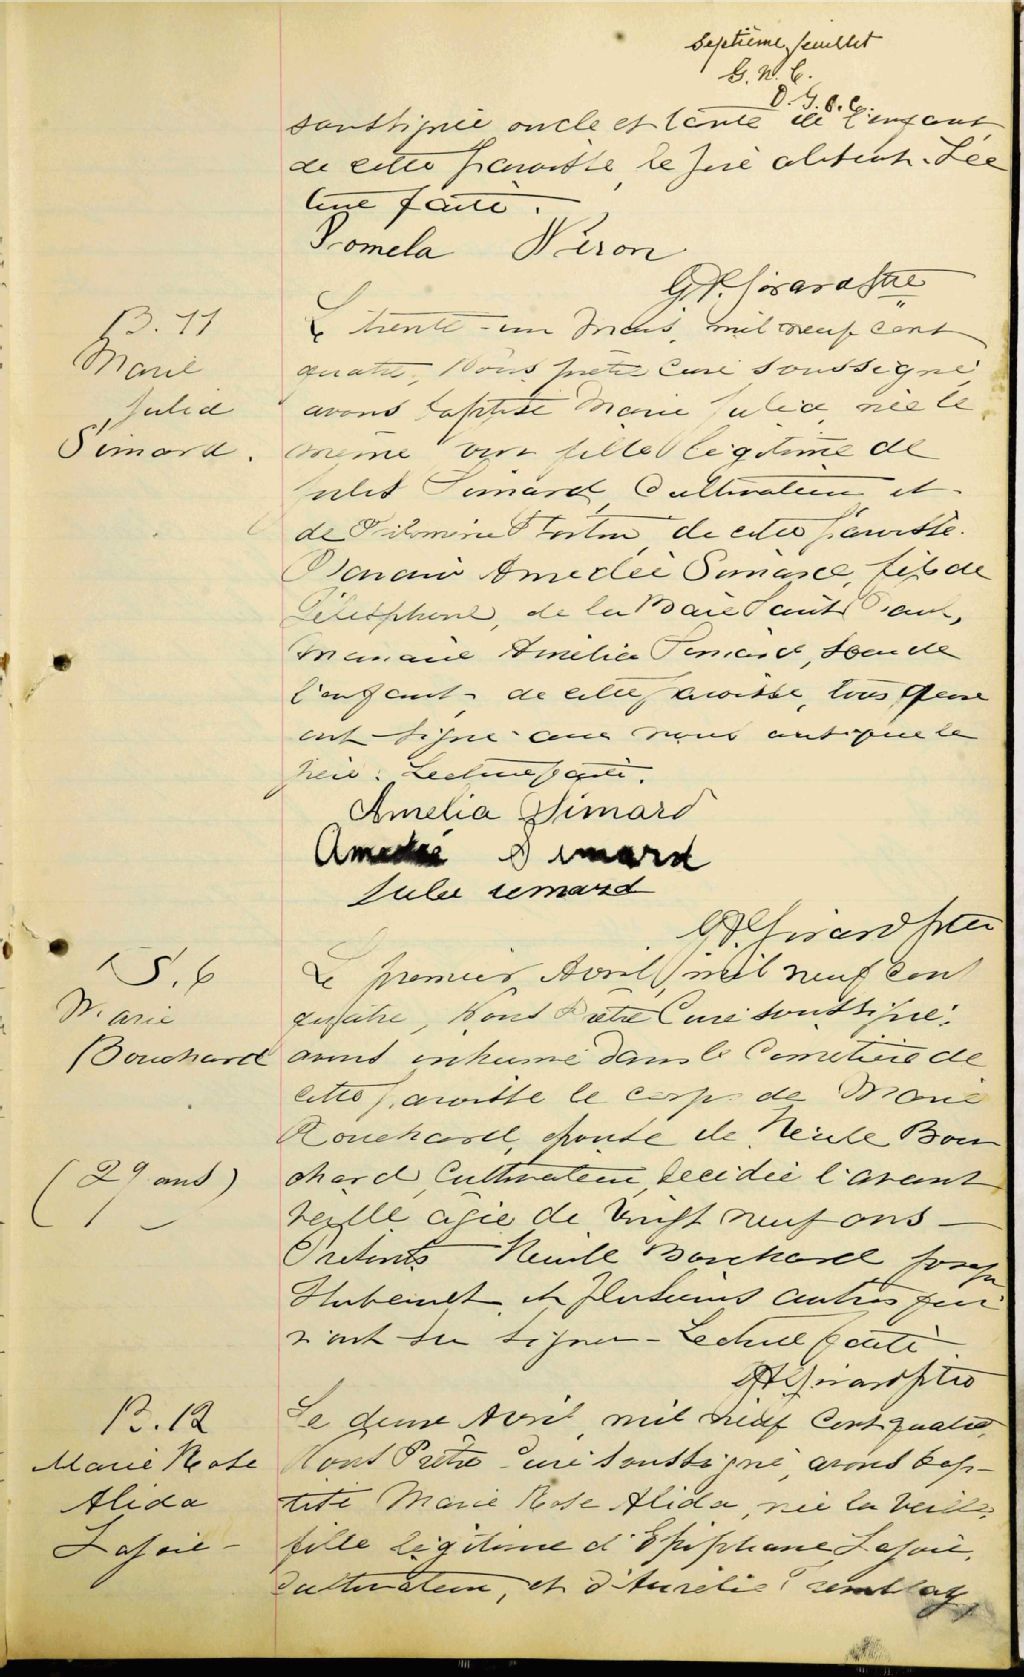 Septième feuillet
G. N. C.
D. G. C. C.
soussignée oncle et tante de l'enfant
de cette paroisse, le père absent. Lec
ture faite.
Pomela Néron
Girard Ptre
B. 11
Marie
Julia
Simard.
Le trente-un Mars, mil neuf cent
quatre, Nous prêtre Curé soussigné,
avons baptisé Marie Julia, née le
même jour fille légitime de
Jules Simard, Cultivateur et
de Philomène Fortin, de cette paroisse.
Parrain Amedée Simard, fils de
Télesphore, de la Baie Saint Paul,
Marraine Amélia Simard, soeur de
l'enfant, de cette paroisse, tous deux
ont signé avec nous ainsi que le
père. Lecture faite.
Amelia Simard
Amedée Simard
Jules Simard
Girard Ptre
S. 6
Marie
Bouchard
(29 ans)
Le premier Avril, mil neuf cent
quatre, Nous Prêtre Curé soussigné,
avons inhumé dans le Cimetière de
cette paroisse le corps de Marie
Bouchard, épouse de Bou
chard, Cultivateur, décédée l'avant
veille âgée de vingt neuf ans —
Présents Bouchard Joseph
et plusieurs autres qui
n'ont su signer — Lecture faite
Girard Ptre
B. 12
Marie Rose
Alida
Lajoie —
Le deux Avril, mil neuf cent quatre,
Nous Prêtre Curé soussigné, avons bap-
tisé Marie Rose Alida, née la veille,
fille légitime d'Epiphane Lajoie,
Cultivateur, et d'Aurélie Tremblay,